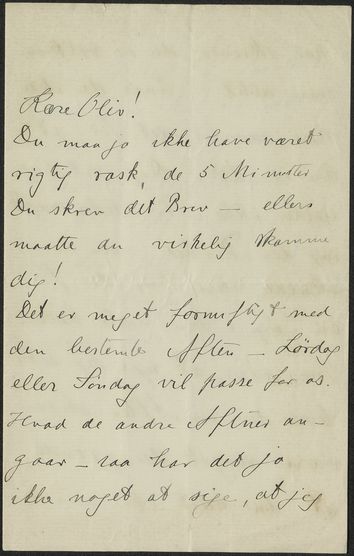 Kære Oliv!
Du maa jo ikke have været
rigtig rask, de 5 Minutter
Du skrev det Brev – ellers
maatte du virkelig skamme
dig!
Det er meget fornuftigt med
den bestemte Aften – Lørdag
eller Søndag vil passe for os.
Hvad de andre Aftner an-
gaar – saa har det jo
ikke noget at sige, at jeg